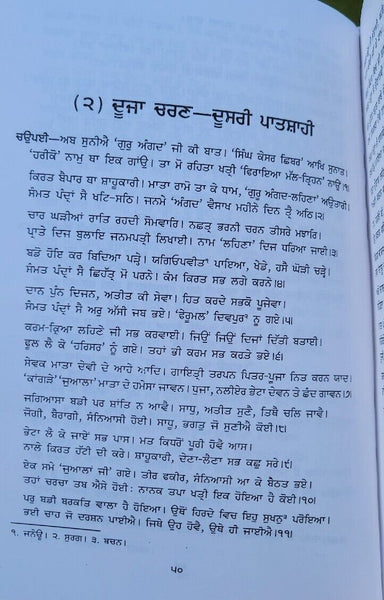 (੨) ਦੂਜਾ ਚਰਣ—ਦੂਸਰੀ ਪਾਤਸ਼ਾਹੀ
ਚਉਪਈ—ਅਬ ਸੁਨੀਐ 'ਗੁਰੂ ਅੰਗਦ' ਜੀ ਕੀ ਬਾਤ। 'ਸਿੰਘ ਕੇਸਰ ਛਿਬਰ' ਆਖਿ ਸੁਨਾਤ।
'ਹਰੀਕੇ' ਨਾਮੁ ਥਾ ਇਕ ਗਾਂਉ। ਤਾ ਮੋ ਰਹਿਤਾ ਖਤ੍ਰੀ 'ਫਿਰਾਇਆ ਮੱਲ-ਤ੍ਰਿਹਨ' ਨਾਉਂ।੧।
ਕਿਰਤ ਬੈਪਾਰ ਥਾ ਸ਼ਾਹੂਕਾਰੀ। ਮਾਤਾ ਰਾਮੋ ਤਾ ਕੇ ਧਾਮ, 'ਗੁਰੂ ਅੰਗਦ-ਲਹਿਣਾ' ਅਉਤਾਰੀ।
ਸੰਮਤ ਪੰਦ੍ਰਾਂ ਸੈ ਖਟ-ਸਠਿ। ਜਨਮੇ 'ਅੰਗਦ' ਵੈਸਾਖ ਮਹੀਨੇ ਦਿਨ ਤ੍ਰੈ ਅਠਿ।੨।
ਚਾਰ ਘੜੀਆਂ ਰਾਤਿ ਰਹਦੀ ਸੋਮਵਾਰਿ। ਨਛਤ੍ਰ ਭਰਨੀ ਚਰਨ ਤੀਸਰੇ ਮਝਾਰਿ।
ਪ੍ਰਾਤੇ ਦਿਜ ਬੁਲਾਇ ਜਨਮਪਤ੍ਰੀ ਲਿਖਾਈ। ਨਾਮ 'ਲਹਿਣਾ' ਦਿਜ ਧਰਿਆ ਜਾਈ।੩।
ਬਡੋ ਹੋਇ ਕਰ ਬਿਦਿਆ ਪੜ੍ਹੇ। ਯਗਿਓਪਵੀਤ੧ ਪਾਇਆ, ਖੇਡੇ, ਹਸੈ ਘੋੜੀ ਚੜ੍ਹੇ।
ਸੰਮਤ ਪੰਦ੍ਰਾਂ ਸੈ ਛਿਹੱਤ੍ਰ ਮੋ ਪਰਨੇ। ਕੰਮ ਕਿਰਤ ਸਭ ਲਗੇ ਕਰਨੇ।੪।
ਦਾਨ ਪੁੰਨ ਦਿਜਨ, ਅਤੀਤ ਕੀ ਸੇਵਾ। ਹਿਤ ਕਰਦੇ ਸਭਕੋ ਪੂਜੇਵਾ।
ਸੰਮਤ ਪੰਦ੍ਰਾਂ ਸੈ ਅਰੁ ਅੱਸੀ ਜਬ ਭਏ। 'ਫੇਰੂਮਲ' ਦਿਵਪੁਰ੨ ਨੂ ਗਏ।੫।
ਕਰਮ-ਕ੍ਰਿਆ ਲਹਿਣੇ ਜੀ ਸਭ ਕਰਵਾਈ। ਜਿਉਂ ਜਿਉਂ ਦਿਜਾਂ ਦਿੱਤੀ ਬਤਾਈ।
ਫੂਲ ਲੈ ਕੇ 'ਹਰਿਸਰ' ਨੂੰ ਗਏ। ਤਹਾਂ ਭੀ ਕਰਮ ਸਭ ਕਰਤੇ ਭਏ।੬।
ਸੇਵਕ ਮਾਤਾ ਦੇਵੀ ਦੇ ਆਹੇ ਆਦਿ। ਗਾਇਤ੍ਰੀ ਤਰਪਨ ਪਿਤਰ-ਪੂਜਾ ਨਿਤ ਕਰਨ ਯਾਦ।
'ਕਾਂਗੜੇ' 'ਜੁਆਲਾ' ਮਾਤਾ ਦੇ ਹਮੇਸਾ ਜਾਵਨ। ਪੂਜਾ, ਨਲੀਏਰ ਭੇਟਾ ਦੇਵਨ ਤੇ ਛੰਦ ਗਾਵਨ।੭।
ਜਗਿਆਸਾ ਬਡੀ ਪਰ ਸ਼ਾਂਤਿ ਨ ਆਵੈ। ਸਾਧੂ, ਅਤੀਤ ਸੁਣੈ, ਤਿਥੈ ਚਲਿ ਜਾਵੈ।
ਜੋਗੀ, ਬੈਰਾਗੀ, ਸੰਨਿਆਸੀ ਹੋਈ। ਸਾਧੂ, ਭਗਤੁ ਜੋ ਸੁਣੀਐ ਕੋਈ।੮।
ਭੇਟਾ ਲੈ ਕੇ ਜਾਏ ਸਭ ਪਾਸ। ਮਤ ਕਿਧਰੋਂ ਪੂਰੀ ਹੋਵੈ ਆਸ।
ਨਾਲੇ ਕਿਰਤ ਹੱਟੀ ਦੀ ਕਰੇ। ਸ਼ਾਹੂਕਾਰੀ, ਦੇਣਾ-ਲੈਣਾ ਸਭ ਕਛੁ ਸਰੇ।੯।
ਏਕ ਸਮੇ 'ਜੁਆਲਾਂ ਜੀ' ਗਏ। ਤੀਰ ਫਕੀਰ, ਸੰਨਿਆਸੀ ਆ ਕੇ ਬੈਠਤ ਭਏ।
ਤਹਾਂ ਚਰਚਾ ਤਬ ਐਸੇ ਹੋਈ: ਨਾਨਕ ਤਪਾ ਖਤ੍ਰੀ ਇਕ ਹੋਇਆ ਹੈ ਕੋਈ।੧੦।
ਪਰੁ ਬਡੀ ਬਰਕਤਿ ਵਾਲਾ ਹੈ ਹੋਇਆ। ਉਥੋਂ ਹਿਰਦੇ ਵਿਚ ਇਹੁ ਸੁਖਨੁ੩ ਪਰੋਇਆ।
ਭਈ ਚਾਹ ਜੋ ਦਰਸ਼ਨ ਪਾਈਐ। ਜਿਥੇ ਉਹ ਹੋਵੈ, ਉਥੇ ਹੀ ਜਾਈਐ।੧੧।
੧. ਜਨੇਊ। ੨. ਸੁਰਗ। ੩. ਬਚਨ।
੫੦